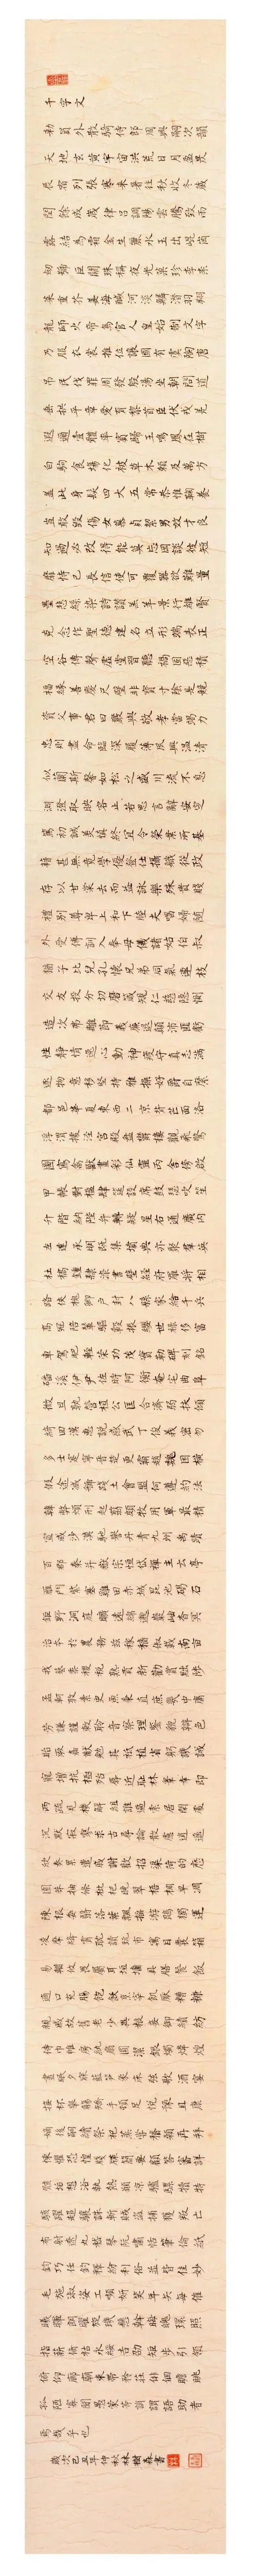 千字文
勅員外散騎侍郎周興嗣次韻
天地玄黃宇宙洪荒日月盈昃
辰宿列張寒來暑往秋收冬藏
閏餘成歲律呂調陽雲騰致雨
露結為霜金生麗水玉出崐崗
劍號巨闕珠稱夜光菓珍李柰
菜重芥薑海鹹河淡鱗潛羽翔
龍師火帝鳥官人皇始制文字
乃服衣裳推位讓國有虞陶唐
弔民伐罪周發殷湯坐朝問道
垂拱平章愛育黎首臣伏戎羌
遐邇壹體率賓歸王鳴鳳在樹
白駒食場化被草木賴及萬方
蓋此身髮四大五常恭惟鞠養
豈敢毀傷女慕貞絜男效才良
知過必改得能莫忘罔談彼短
靡恃己長信使可覆器欲難量
墨悲絲染詩讚羔羊景行維賢
克念作聖德建名立形端表正
空谷傳聲虛堂習聽禍因惡積
福緣善慶尺璧非寶寸陰是競
資父事君曰嚴與敬孝當竭力
忠則盡命臨深履薄夙興溫凊
似蘭斯馨如松之盛川流不息
淵澄取映容止若思言辭安定
篤初誠美慎終宜令榮業所基
籍甚無竟學優登仕攝職從政
存以甘棠去而益詠樂殊貴賤
禮別尊卑上和下睦夫唱婦隨
外受傅訓入奉母儀諸姑伯叔
猶子比兒孔懷兄弟同氣連枝
交友投分切磨箴規仁慈隱惻
造次弗離節義廉退顛沛匪虧
性靜情逸心動神疲守真志滿
逐物意移堅持雅操好爵自縻
都邑華夏東西二京背芒面洛
浮渭據涇宮殿盤鬱樓觀飛驚
圖寫禽獸畫彩仙靈丙舍傍啟
甲帳對楹肆筵設席鼓瑟吹笙
升階納陛弁轉疑星右通廣內
左達承明既集墳典亦聚群英
杜稿鍾隸漆書壁經府羅將相
路俠槐卿戶封八縣家給千兵
高冠陪輦驅轂振纓世祿侈富
車駕肥輕策功茂實勒碑刻銘
磻溪伊尹佐時阿衡奄宅曲阜
微旦孰營桓公匡合濟弱扶傾
綺回漢惠說感武丁俊乂密勿
多士寔寧晉楚更霸趙魏困橫
假途滅虢踐土會盟何遵約法
韓弊煩刑起翦頗牧用軍最精
宣威沙漠馳譽丹青九州禹跡
百郡秦并嶽宗恒岱禪主云亭
雁門紫塞雞田赤城昆池碣石
鉅野洞庭曠遠綿邈巖岫杳冥
治本於農務茲稼穡俶載南畝
我藝黍稷稅熟貢新勸賞黜陟
孟軻敦素史魚秉直庶幾中庸
勞謙謹敕聆音察理鑒貌辨色
貽厥嘉猷勉其祗植省躬譏誡
寵增抗極殆辱近恥林皋幸即
兩疏見機解組誰逼索居閒處
沉默寂寥求古尋論散慮逍遙
欣奏累遣慼謝歡招渠荷的歷
園莽抽條枇杷晚翠梧桐早凋
陳根委翳落葉飄颻遊鵾獨運
凌摩絳霄耽讀玩市寓目囊箱
易輶攸畏屬耳垣牆具膳餐飯
適口充腸飽飫烹宰飢厭糟糠
親戚故舊老少異糧妾御績紡
侍巾帷房紈扇圓潔銀燭煒煌
晝眠夕寐藍筍象床弦歌酒宴
接杯舉觴矯手頓足悅豫且康
嫡後嗣續祭祀蒸嘗稽顙再拜
悚懼恐惶牋牒簡要顧答審詳
骸垢想浴執熱願涼驢騾犢特
駭躍超驤誅斬賊盜捕獲叛亡
布射遼丸嵇琴阮嘯恬筆倫紙
鈞巧任釣釋紛利俗並皆佳妙
毛施淑姿工顰妍笑年矢每催
曦暉朗曜璇璣懸斡晦魄環照
指薪脩祜永綏吉劭矩步引領
俯仰廊廟束帶矜莊徘徊瞻眺
孤陋寡聞愚蒙等誚謂語助者
焉哉乎也
歲次己丑年仲秋林樹森書